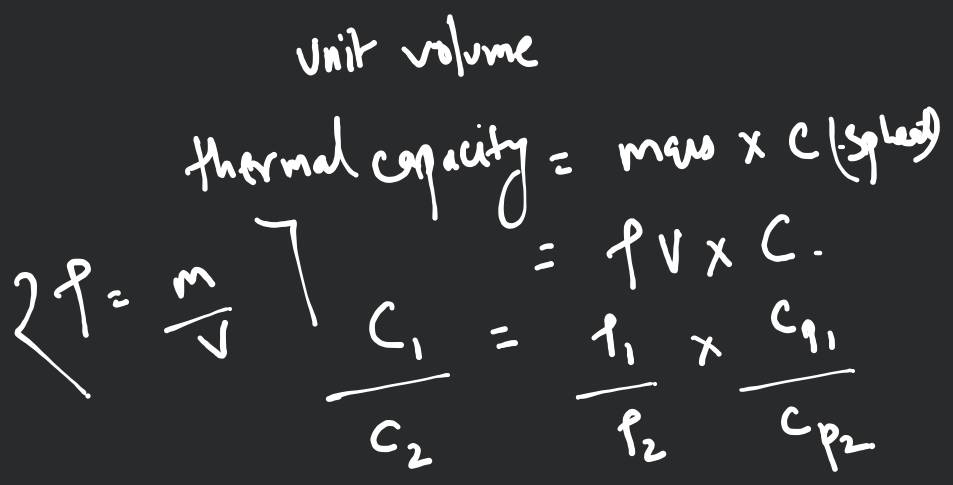 unit volume
thermal capacity = mass x C (sp heat)
= ρV x C.
ρ = m/V
C₁/C₂ = ρ₁/ρ₂ x Cp₁/Cp₂